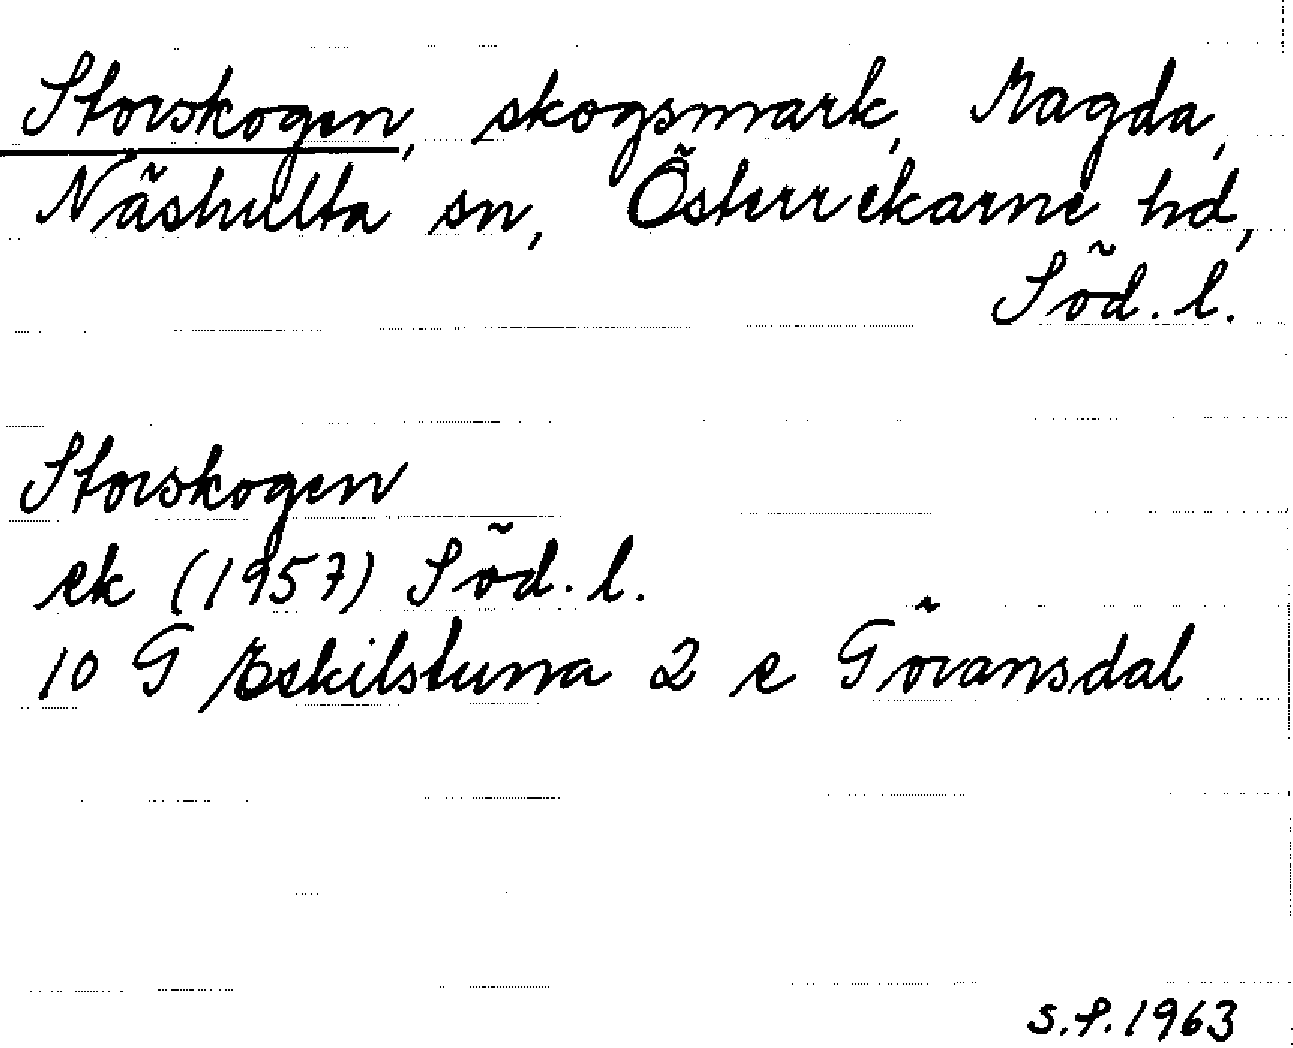 Storskogen, skogsmark, Magda,
Näshulta sn, Österrekarne hd,
Söd. l.
Storskogen
ek (1957) Söd. l.
10 G Eskilstuna 2 e Göransdal
S.P. 1963